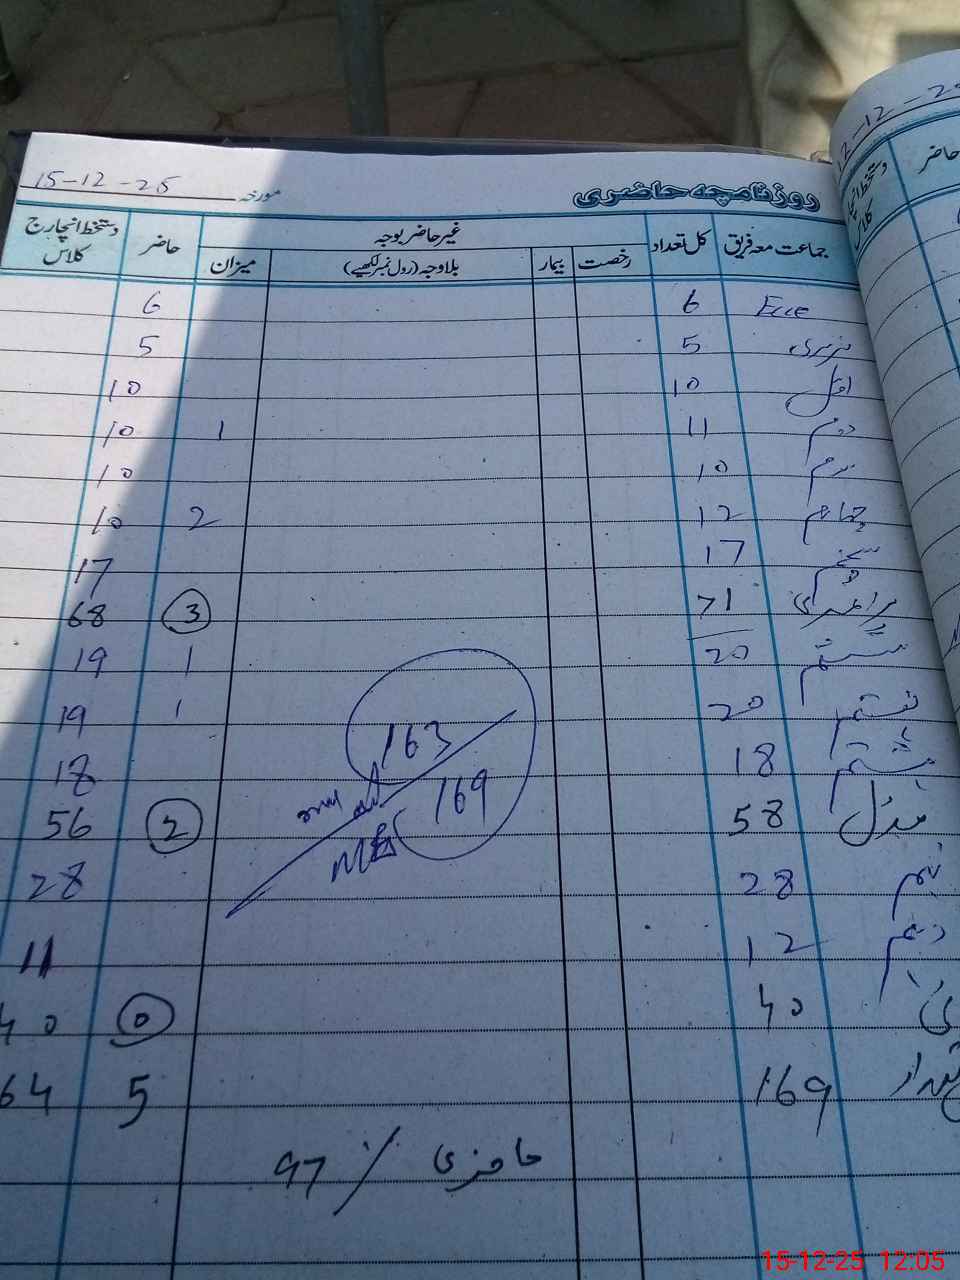 روزنامچہ حاضری مورخہ 15-12-25
جماعت معہ فریق کل تعداد غیر حاضر بوجہ حاضر دستخط انچارج کلاس
رخصت بیمار بلاوجہ (رول نمبر لکھیے) میزان
Ecce 6 6
نرسری 5 5
اول 10 10
دوم 11 1 10
سوم 10 10
چہارم 12 2 10
پنجم 17 17
پرائمری 71 3 68
ششم 20 1 19
ہفتم 20 1 19
ہشتم 18 18
مڈل 58 2 56
نہم 28 28
دہم 12 11
ئی 40 0 40
تعداد 169 5 64
163
169
حاضری ٪ 97
12-12-25
حاضر
دستخط انچارج
کلاس
15-12-25 12:05